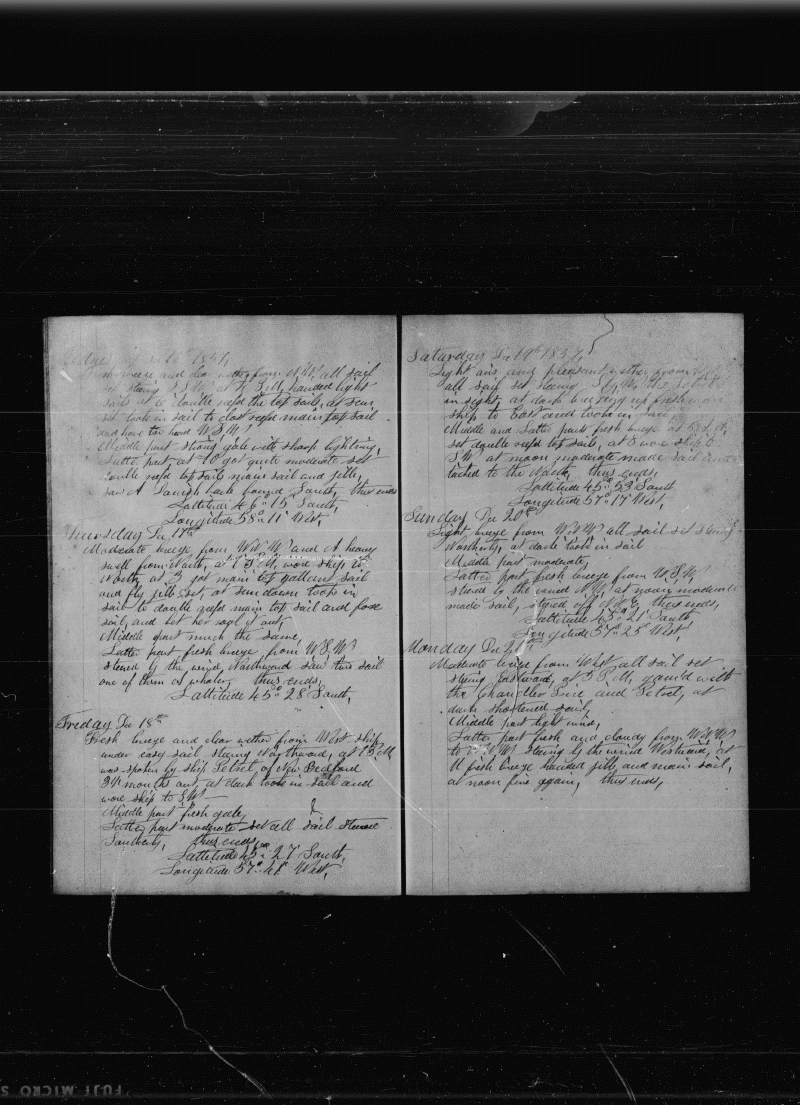 1857,
breeze and clear from all sail
light
sails at 6 double reefd the top sails, at sun
set took in sail to close reefd main top sail
and hove too head W.S.W.
Middle part strong gale with sharp lightning,
Latter part, at 10 got quite moderate set
double reefd top sails main sail and jibb,
saw A Danish bark bound South, thus ends
Lattitude 46° 15 South,
Longitude 58° 11 West,
Thursday De 17th
Moderate breeze from W.N.W. and A heavy
swell from North, at 1 P.M, wore ship to
North, at 3 got main top gallant sail
and fly jibb set, at sun down took in
sail to double reefd main top sail and fore
sail, and let her sagg it out,
Middle part much the same,
Latter part fresh breeze from W.S.W.
steered by the wind Northward saw two sail
one of them A whaler, thus ends,
Lattitude 45° 28 South,
Freday De 18th
Fresh breeze and clear wether from West ship
under easy sail steering Northward, at 1 P.M
was spoken by ship Petrel of New Bedford
months out, at dark took in sail and
wore ship to S.W.
Middle part fresh gale,
Latter part moderate set all sail
thus ends,
Lattitude 45° 27 South,
Longitude 57° West,
Saturday De 19th 1857,
Light airs and pleasant wether from
all sail set steering
in sight, at dark breezing up fresh wore
ship to East and took in sail
Middle and Latter part fresh breeze at
set double reefd top sails, at 8 wore ship to
S.W. at noon moderate made sail and
tacked to the North, thus ends,
Lattitude 45° 52 South,
Longitude 57° 17 West,
Sunday De 20th
Light breeze from W.N.W. all sail set steering
Northerly, at dark took in sail
Middle part moderate,
Latter part fresh breeze from W.S.W,
steered by the wind N.W. at noon moderate
made sail, steered off thus ends,
Lattitude 45° 21 South,
Longitude 57° 25 West,
Monday De
Moderate breeze from West all sail set
steering Eastward, at P.M, gam'd with
the Chandler Price and Petrel, at
dark shortened sail,
Middle part light wind,
Latter part fresh and cloudy from W.N.W.
to steering by the wind Westward, at
11 fresh breeze handed jibb, and main sail,
at noon fine again, thus ends,
FUJI MICRO S